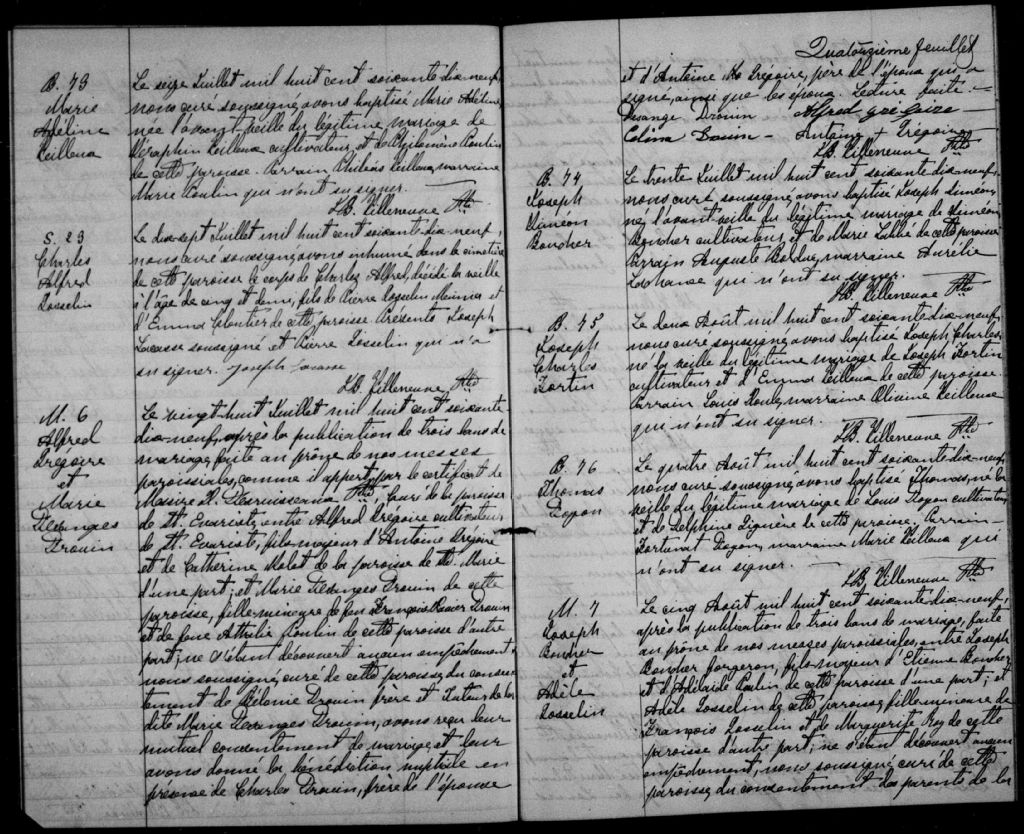 B. 73
Marie
Adéline
Veilleux
Le seize Juillet mil huit cent soixante-dix-neuf,
nous curé soussigné, avons baptisé Marie Adéline,
née l'avant-veille du légitime mariage de
Séraphin Veilleux, cultivateur, et de Philomène Poulin
de cette paroisse. Parrain, Philéas Veilleux, marraine
Marie Poulin qui n'ont su signer.
J.B. Villeneuve Ptre
S. 23
Charles
Alfred
Josselin
Le dix-sept Juillet mil huit cent soixante-dix-neuf,
nous curé soussigné, avons inhumé dans le cimetière
de cette paroisse le corps de Charles Alfred, décédé la veille
à l'âge de cinq et demi, fils de Pierre Josselin Meunier et
d'Emma Cloutier de cette paroisse. Présents Joseph
Lacasse soussigné et Pierre Josselin qui n'a
su signer. Joseph Lacasse
J.B. Villeneuve Ptre
M. 6
Alfred
Grégoire
et
Marie
Desanges
Drouin
Le vingt-huit Juillet mil huit cent soixante-
dix-neuf, après la publication de trois bans de
mariage, faite au prône de nos messes
paroissiales, comme il appert par le certificat de
Messire H. Desruisseaux Ptre, curé de la paroisse
de St. Evariste, entre Alfred Grégoire cultivateur
de St. Evariste, fils majeur d'Antoine Grégoire
et de Catherine Molet de la paroisse de Ste. Marie
d'une part; et Marie Desanges Drouin de cette
paroisse, fille mineure de feu François Xavier Drouin
et de feue Atthilie Poulin de cette paroisse d'autre
part; ne s'étant découvert aucun empêchement,
nous soussigné, curé de cette paroisse, du consen-
tement de Bélonie Drouin frère et Tuteur de la
dite Marie Desanges Drouin, avons reçu leur
mutuel consentement de mariage, et leur
avons donné la bénédiction nuptiale en
présence de Charles Drouin, frère de l'épouse
Quatorzième feuillet
et d'Antoine Grégoire, père de l'époux qui a
signé, ainsi que les époux. Lecture faite.
Desange Drouin Alfred gréguire
Célina Drouin Antoine + Grégoire
J.B. Villeneuve Ptre
B. 74
Joseph
Siméon
Boucher
Le trente Juillet mil huit cent soixante-dix-neuf,
nous curé soussigné, avons baptisé Joseph Siméon,
né l'avant-veille du légitime mariage de Siméon
Boucher cultivateur, et de Marie Labbé de cette paroisse
Parrain Auguste Bolduc, marraine Aurélie
Lachance qui n'ont su signer.
J.B. Villeneuve Ptre
B. 75
Joseph
Charles
Fortin
Le deux Août mil huit cent soixante-dix-neuf,
nous curé soussigné, avons baptisé Joseph Charles,
né la veille du légitime mariage de Joseph Fortin
cultivateur et d'Emma Veilleux de cette paroisse.
Parrain Louis Roule, marraine Olivine Veilleux
qui n'ont su signer.
J.B. Villeneuve Ptre
B. 76
Thomas
Doyon
Le quatre Août mil huit cent soixante-dix-neuf,
nous curé soussigné, avons baptisé Thomas, né la
veille du légitime mariage de Louis Doyon cultivateur
et de Delphine Giguère de cette paroisse. Parrain
Fortunat Doyon, marraine Marie Veilleux qui
n'ont su signer.
J.B. Villeneuve Ptre
M. 7
Joseph
Boucher
et
Adèle
Josselin
Le cinq Août mil huit cent soixante-dix-neuf,
après la publication de trois bans de mariage, faite
au prône de nos messes paroissiales, entre Joseph
Boucher forgeron, fils majeur d'Etienne Boucher
et d'Adélaïde Poulin de cette paroisse d'une part; et
Adèle Josselin de cette paroisse, fille mineure de
François Josselin et de Marguerite Roy de cette
paroisse d'autre part; ne s'étant découvert aucun
empêchement, nous soussigné, curé de cette
paroisse, du consentement des parents de la